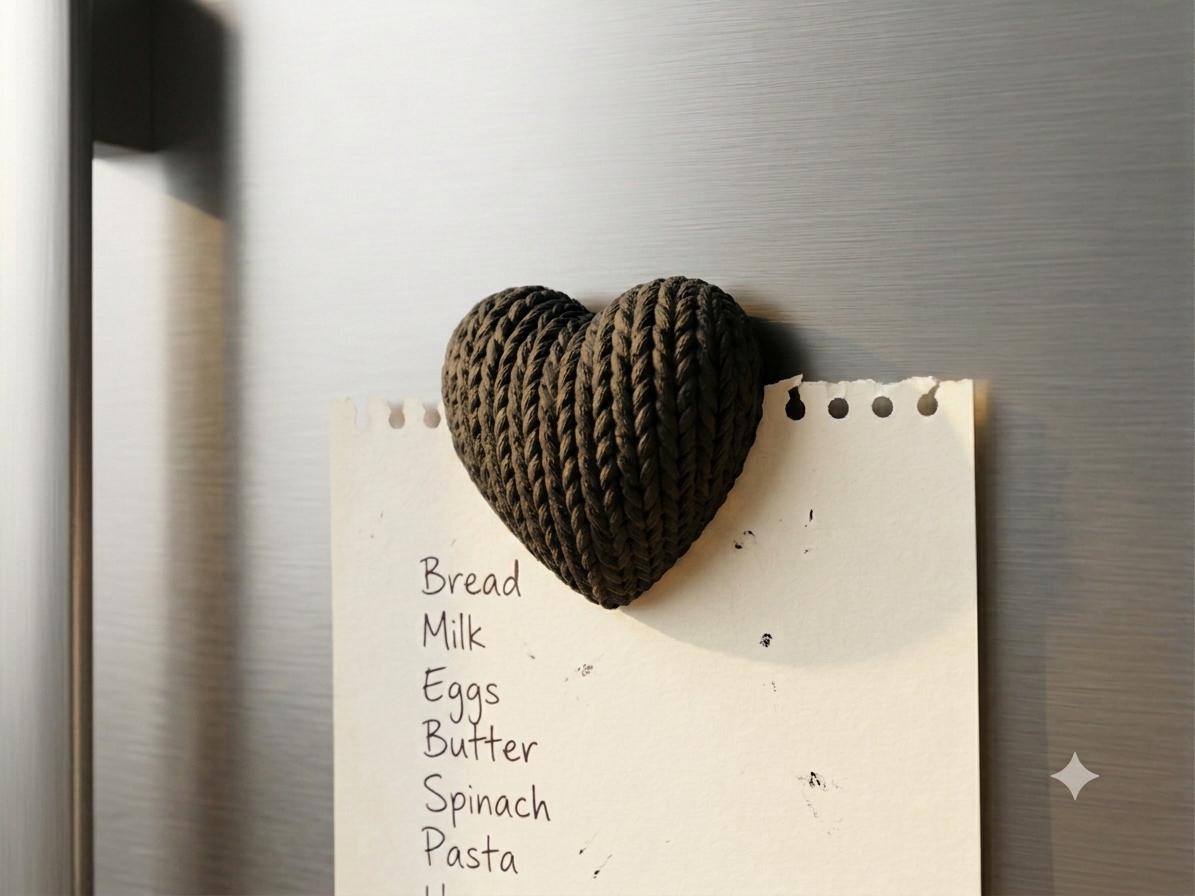 Bread
Milk
Eggs
Butter
Spinach
Pasta